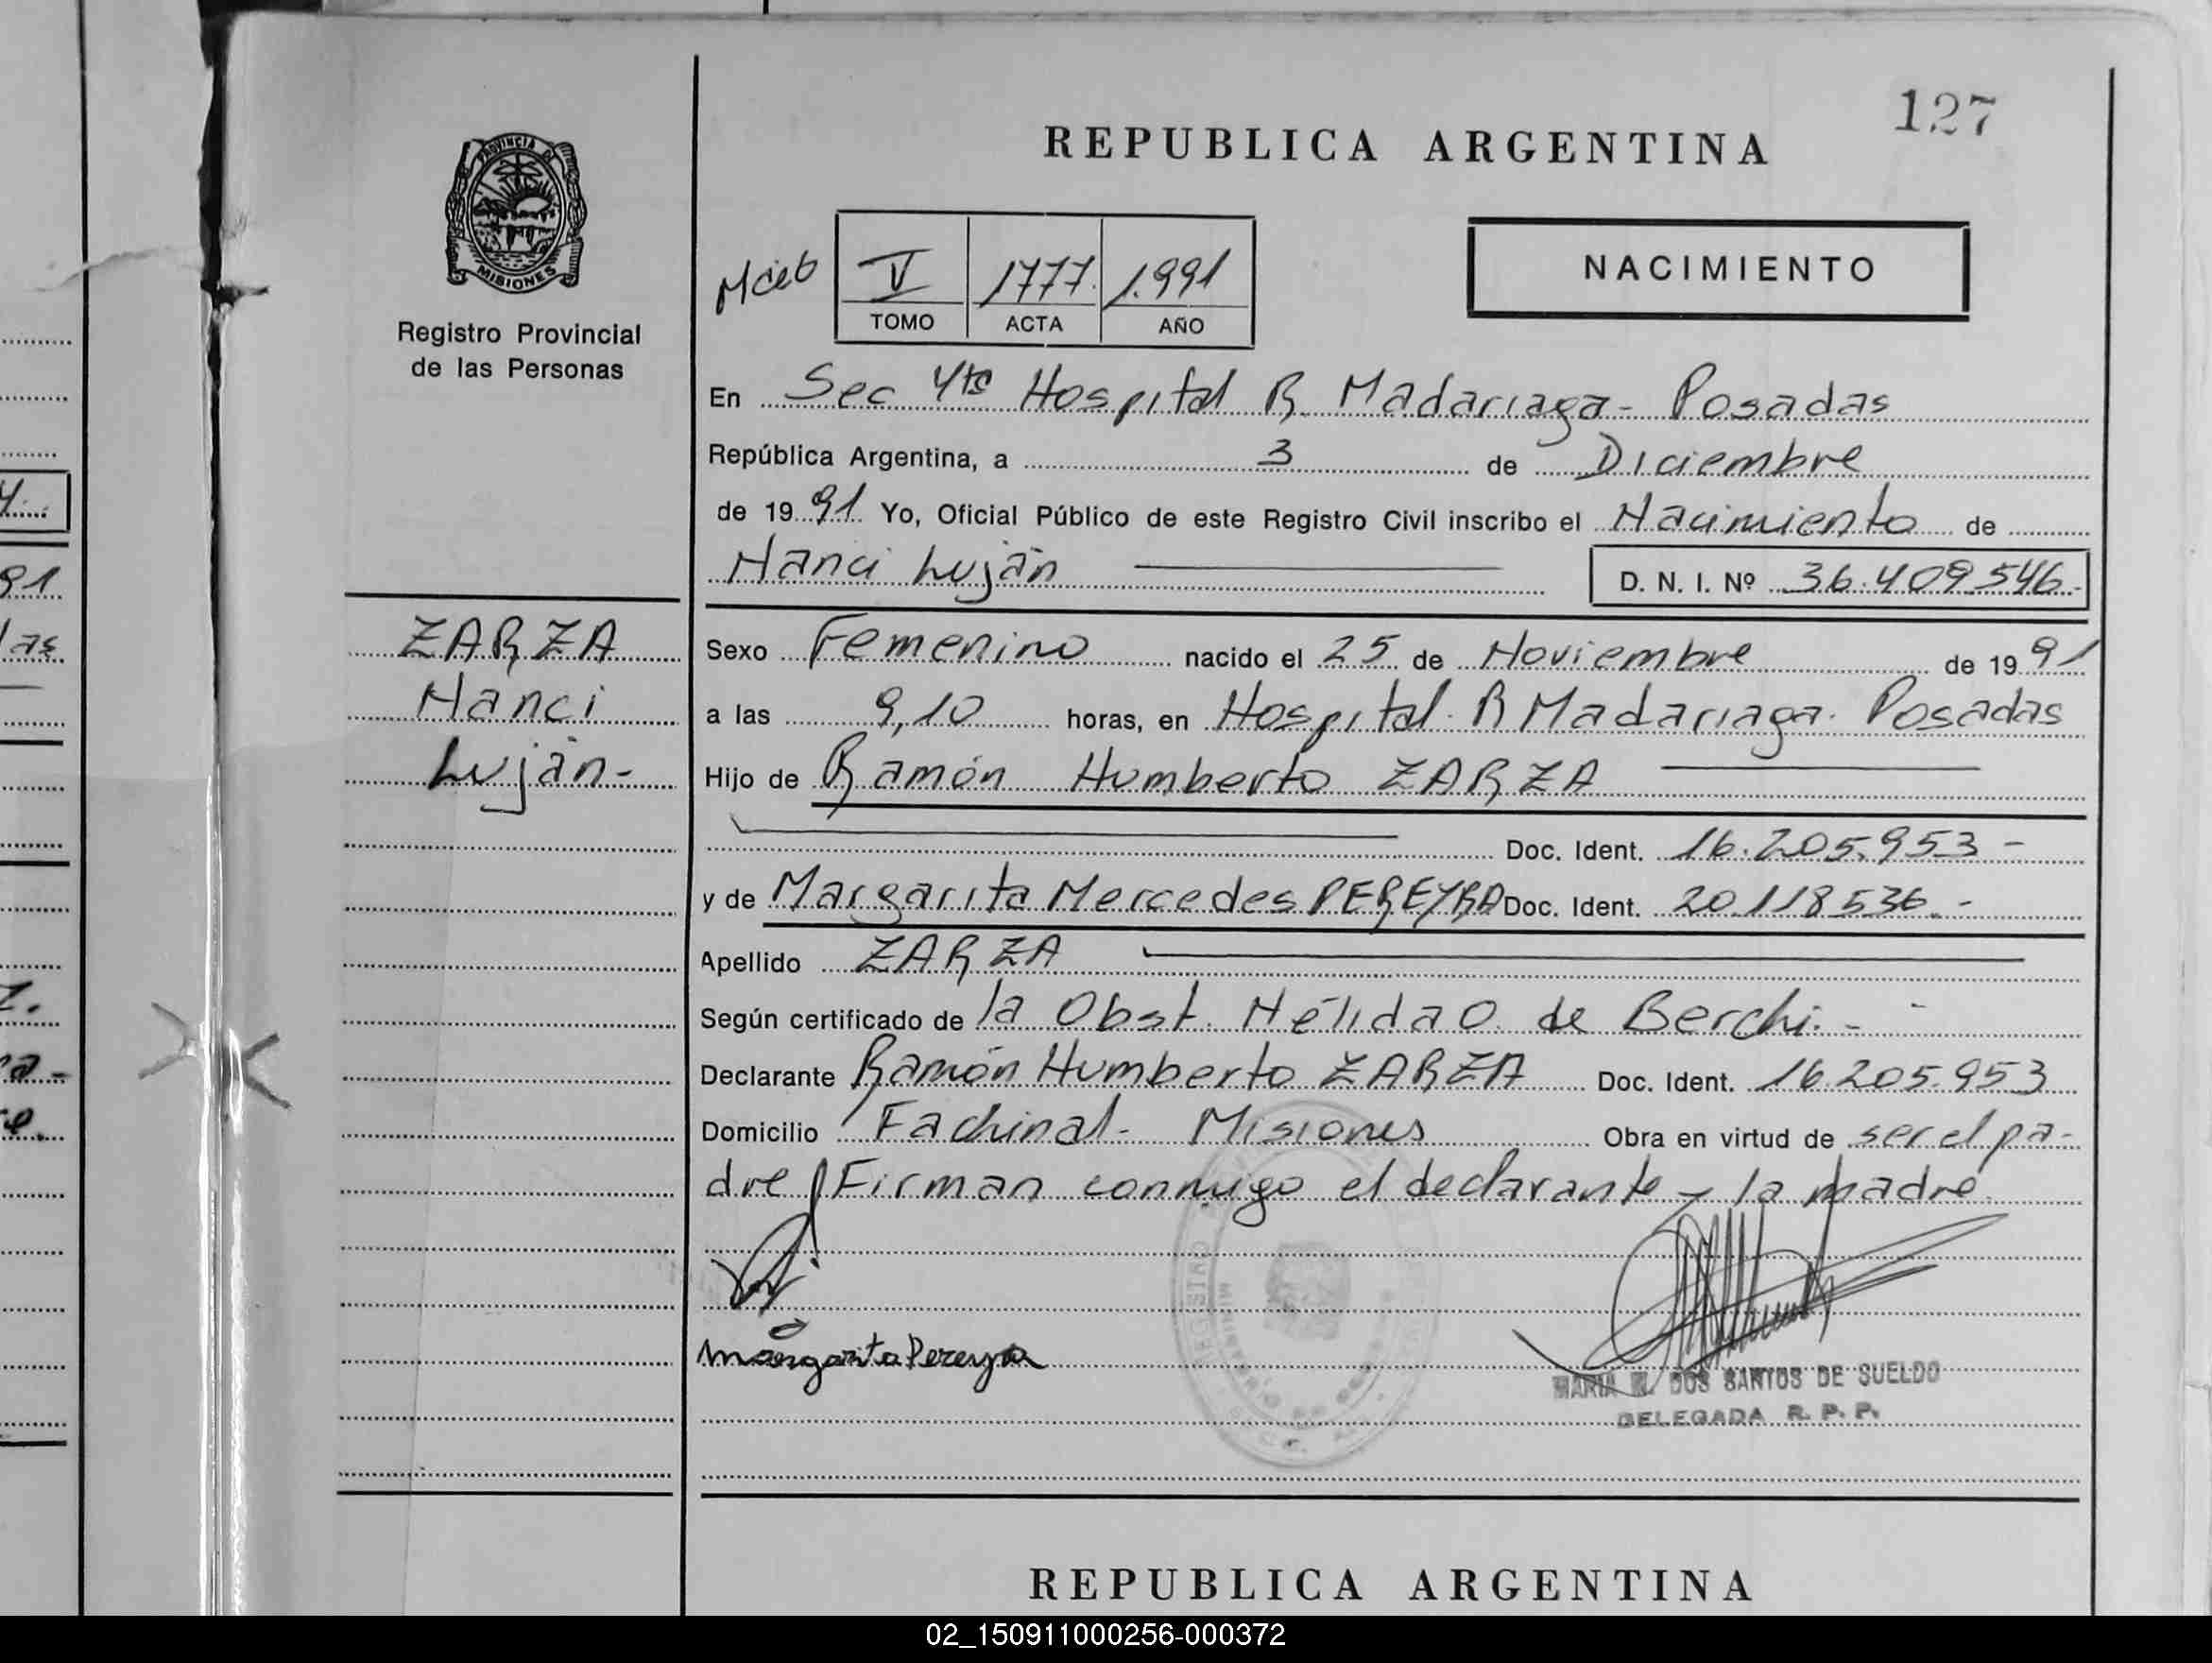 127
REPUBLICA ARGENTINA
PROVINCIA DE
MISIONES
Registro Provincial
de las Personas
V 1777 1.991
TOMO ACTA AÑO
NACIMIENTO
En Sec 4ta Hospital R. Madariaga - Posadas
República Argentina, a 3 de Diciembre
de 1991 Yo, Oficial Público de este Registro Civil inscribo el Nacimiento de
Nanci Luján D. N. I. Nº 36.409.546.-
ZARZA
Nanci
Luján-
Sexo Femenino nacido el 25 de Noviembre de 1991
a las 9,10 horas, en Hospital R Madariaga. Posadas
Hijo de Ramón Humberto ZARZA
Doc. Ident. 16.205.953 -
y de Margarita Mercedes PEREYRA Doc. Ident. 20.118536. -
Apellido ZARZA
Según certificado de la Obst. Nélida O. de Berchi. -
Declarante Ramón Humberto ZARZA Doc. Ident. 16.205.953
Domicilio Fachinal - Misiones Obra en virtud de ser el pa-
dre Firman conmigo el declarante y la madre
Margarita Pereyra
MARIA N. DOS SANTOS DE SUELDO
DELEGADA R. P. P.
REPUBLICA ARGENTINA
02_150911000256-000372